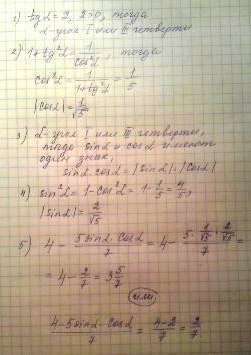 1) tg α = 2, 2 > 0, тогда
α - угол I или III четверти
2) 1 + tg²α = 1/cos²α, тогда
cos²α = 1/(1+tg²α) = 1/5
|cos α| = 1/√5
3) α - угол I или III четверти,
тогда sin α и cos α имеют
один знак,
sin α · cos α = |sin α| · |cos α|
4) sin²α = 1 - cos²α = 1 - 1/5 = 4/5,
|sin α| = 2/√5
5) 4 - (5 sin α · cos α)/7 = 4 - (5 · 1/√5 · 2/√5)/7 =
= 4 - 2/7 = 3 5/7
или
(4 - 5 sin α · cos α)/7 = (4-2)/7 = 2/7